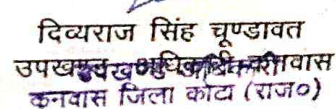 दिव्यराज सिंह चूण्डावत
उपखण्ड अधिकारी कनवास
कनवास जिला कोटा (राज०)